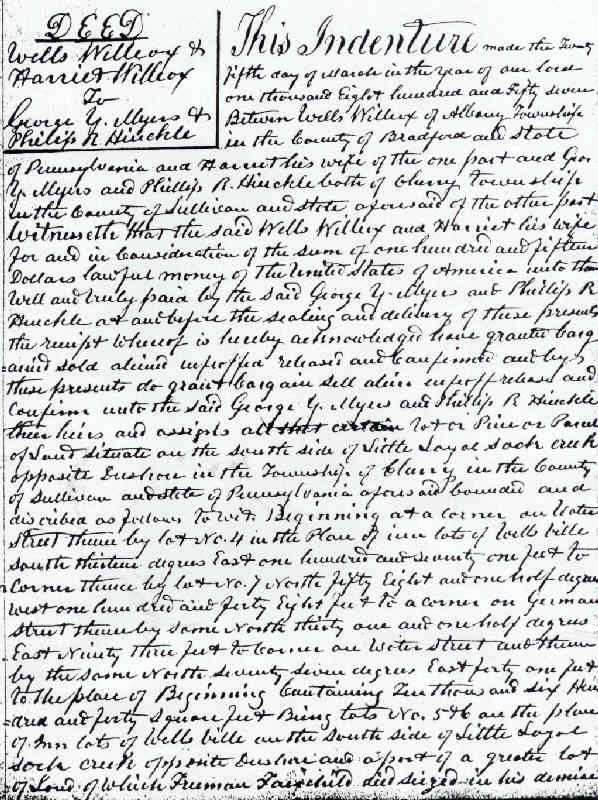 DEED
Wells Willcox &
Harriet Willcox
To
George Y. Myers &
Phillip R Hinckle
This Indenture made the Twenty
fifth day of March in the Year of our lord
one thousand Eight hundred and Fifty seven
Betwin Wells Willcox of Albany Township
in the County of Bradford and State
of Pennsylvania and Harriet his wife of the one part and Geo
Y. Myers and Phillip R. Hinckle both of Cherry township
in the County of Sullivan and state aforesaid of the other part
Witnesseth that the said Wells Willcox and Harriet his wife
for and in Consideration of the sum of one hundred and fifteen
Dollars lawful money of the United States of America unto them
Well and truly paid by the said George Y. Myers and Phillip R
Hinckle at and before the sealing and delivery of these presents
the receipt whereof is hereby acknowledged have granted barg
=ained sold aliend infeoffed released and Confirmed and by
these presents do grant bargain sell alien infeoff release and
Confirm unto the said George Y. Myers and Phillip R Hinckle
their heirs and assigns all that certain lot or Piece or Parcel
of Land situate on the south side of Little Loyal sock creek
opposite Dushore in the Township of Cherry in the County
of Sullivan and state of Pennsylvania aforesaid bounded and
discribed as follows to wit: Beginning at a corner on Water
street thence by lot No. 4 in the Plan of inn lots of Wells ville
south thirteen degrees East one hundred and seventy one feet to
Corner thence by lot No. 7 North fifty Eight and one half degrees
west one hundred and forty Eight feet to a corner on German
street thence by same North thirty one and one half degrees
East Ninty three feet to Corner on Water street and thence
by the same North seventy seven degrees East forty one feet
to the place of Beginning Containing Ten thousand six Hun
=dred and forty Square feet Being lots No. 5&6 on the plan
of Inn lots of Wells ville on the south side of Little Loyal
sock creek opposite Dushore and a part of a greater lot
of Land of which Freeman Fairchild died seized in his demise